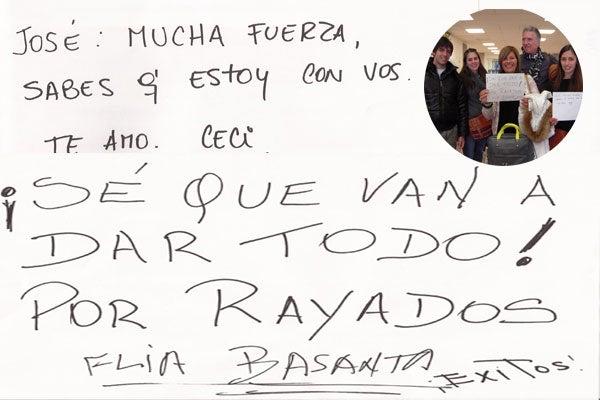 JOSÉ: MUCHA FUERZA,
SABES q' ESTOY CON VOS.
TE AMO. CECI
¡SÉ QUE VAN A
DAR TODO!
POR RAYADOS
FLIA BASANTA
¡EXITOS!